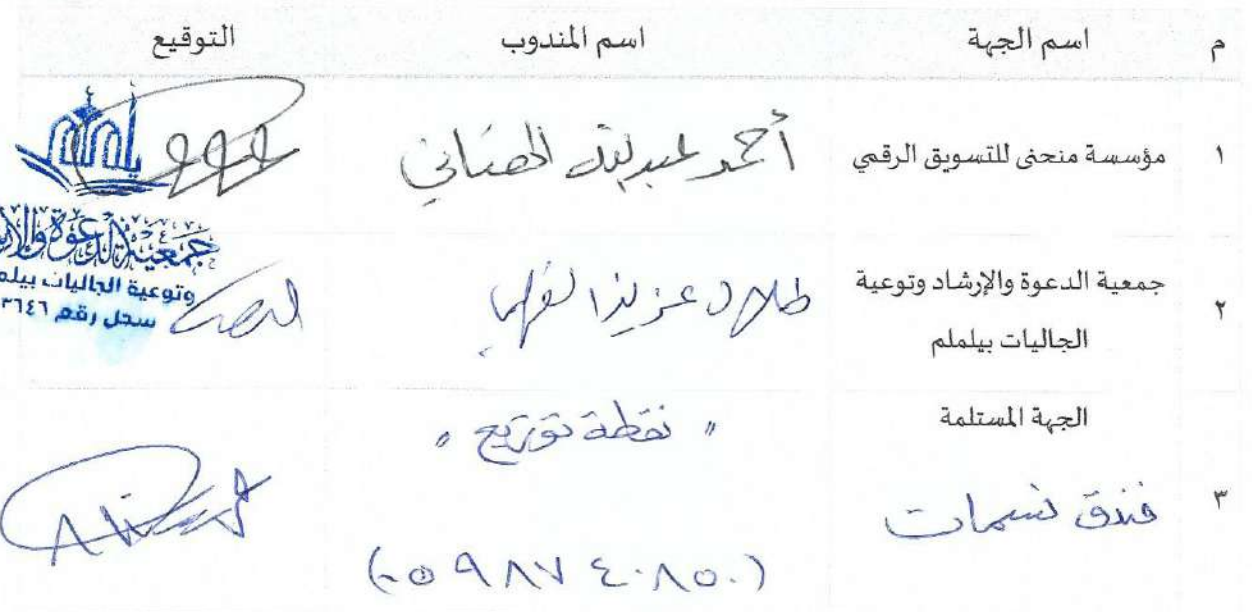 م اسم الجهة اسم المندوب التوقيع
١ مؤسسة منحنى للتسويق الرقمي أحمد عبدالله
جمعية الدعوة والإرشاد وتوعية
٢ الجاليات بيلملم
طلال عزيز
جمعية الدعوة والإر
وتوعية الجاليات بيلم
سجل رقم ٣٦٤٦
الجهة المستلمة " نقطة توزيع "
٣ فندق نسمات
(٠٥٩٨٧٤٠٨٥٠)